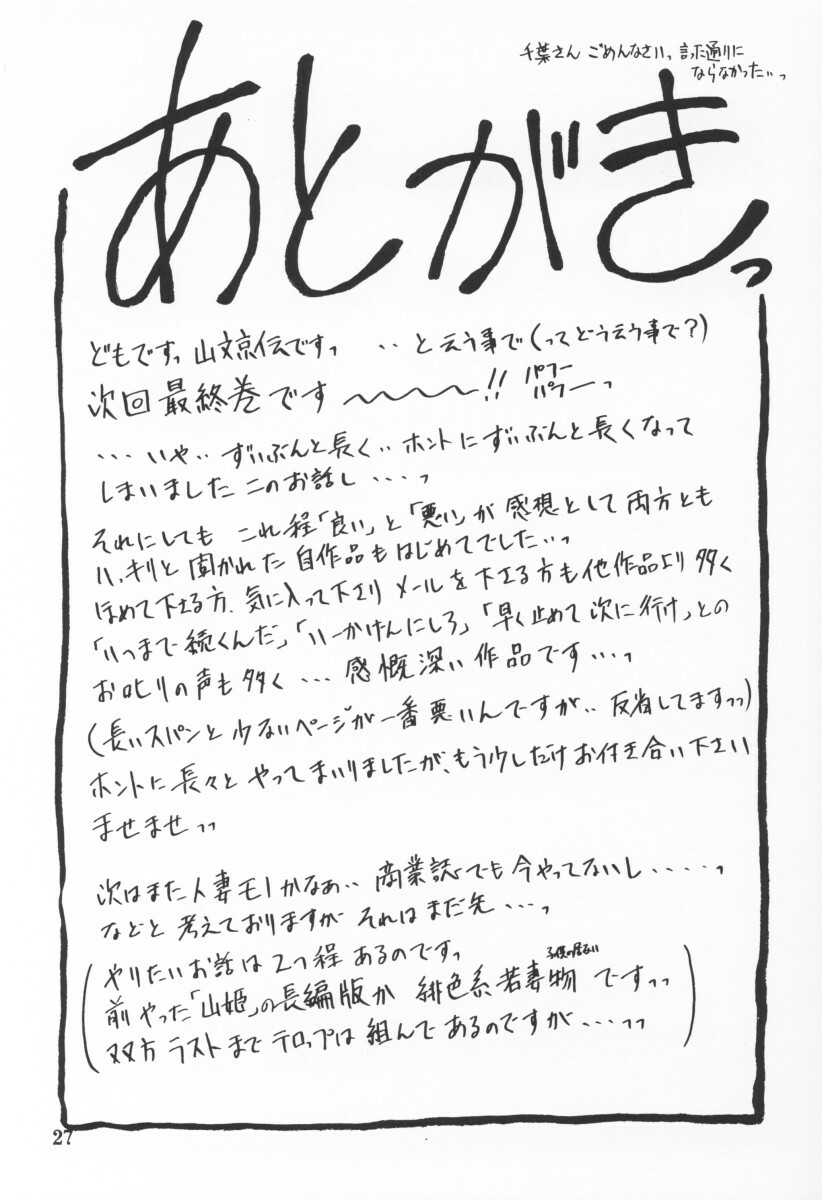 千葉さん ごめんなさいっ 言った通りに
ならなかった・・っ
あとがきっ
どもですっ 山文京伝ですっ ・・と云う事で(ってどう云う事で?)
次回最終巻です〜〜〜〜!! パフー
パフーーっ
・・・いや・・ずいぶんと長く・・ホントにずいぶんと長くなって
しまいましたこのお話し・・・・っ
それにしても これ程「良い」と「悪い」が感想として両方とも
ハッキリと聞かれた自作品もはじめてでした・・・っ
ほめて下さる方、気に入って下さり メールを下さる方も他作品より多く
「いつまで続くんだ」「いーかげんにしろ」「早く止めて次に行け」との
お叱りの声も多く・・・感慨深い作品です・・・っ
(長いスパンと少ないページが一番悪いんですが・・反省してますっっ)
ホントに長々とやってまいりましたが、もう少しだけお付き合い下さい
ませませっっ
次はまた人妻モノかなぁ・・商業誌でも今やってないし・・・・・っ
などと考えておりますが それはまだ先・・・っ
やりたいお話は2つ程あるのですっ
子供の居ない
前やった「山姫」の長編版か 緋色系若妻物ですっっ
双方ラストまでテロップは組んであるのですが・・・っっ
27